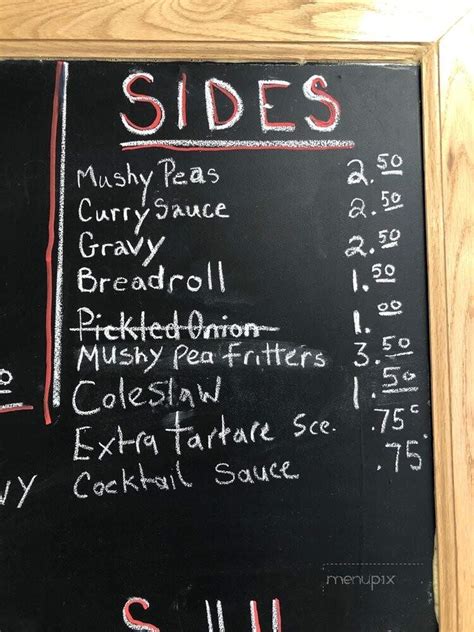 SIDES
Mushy Peas 2.50
Curry Sauce 2.50
Gravy 2.50
Breadroll 1.50
Pickled Onion 1.00
Mushy Pea Fritters 3.50
Coleslaw 1.50
Extra Tartare Sce. .75c
Cocktail Sauce .75
menupix